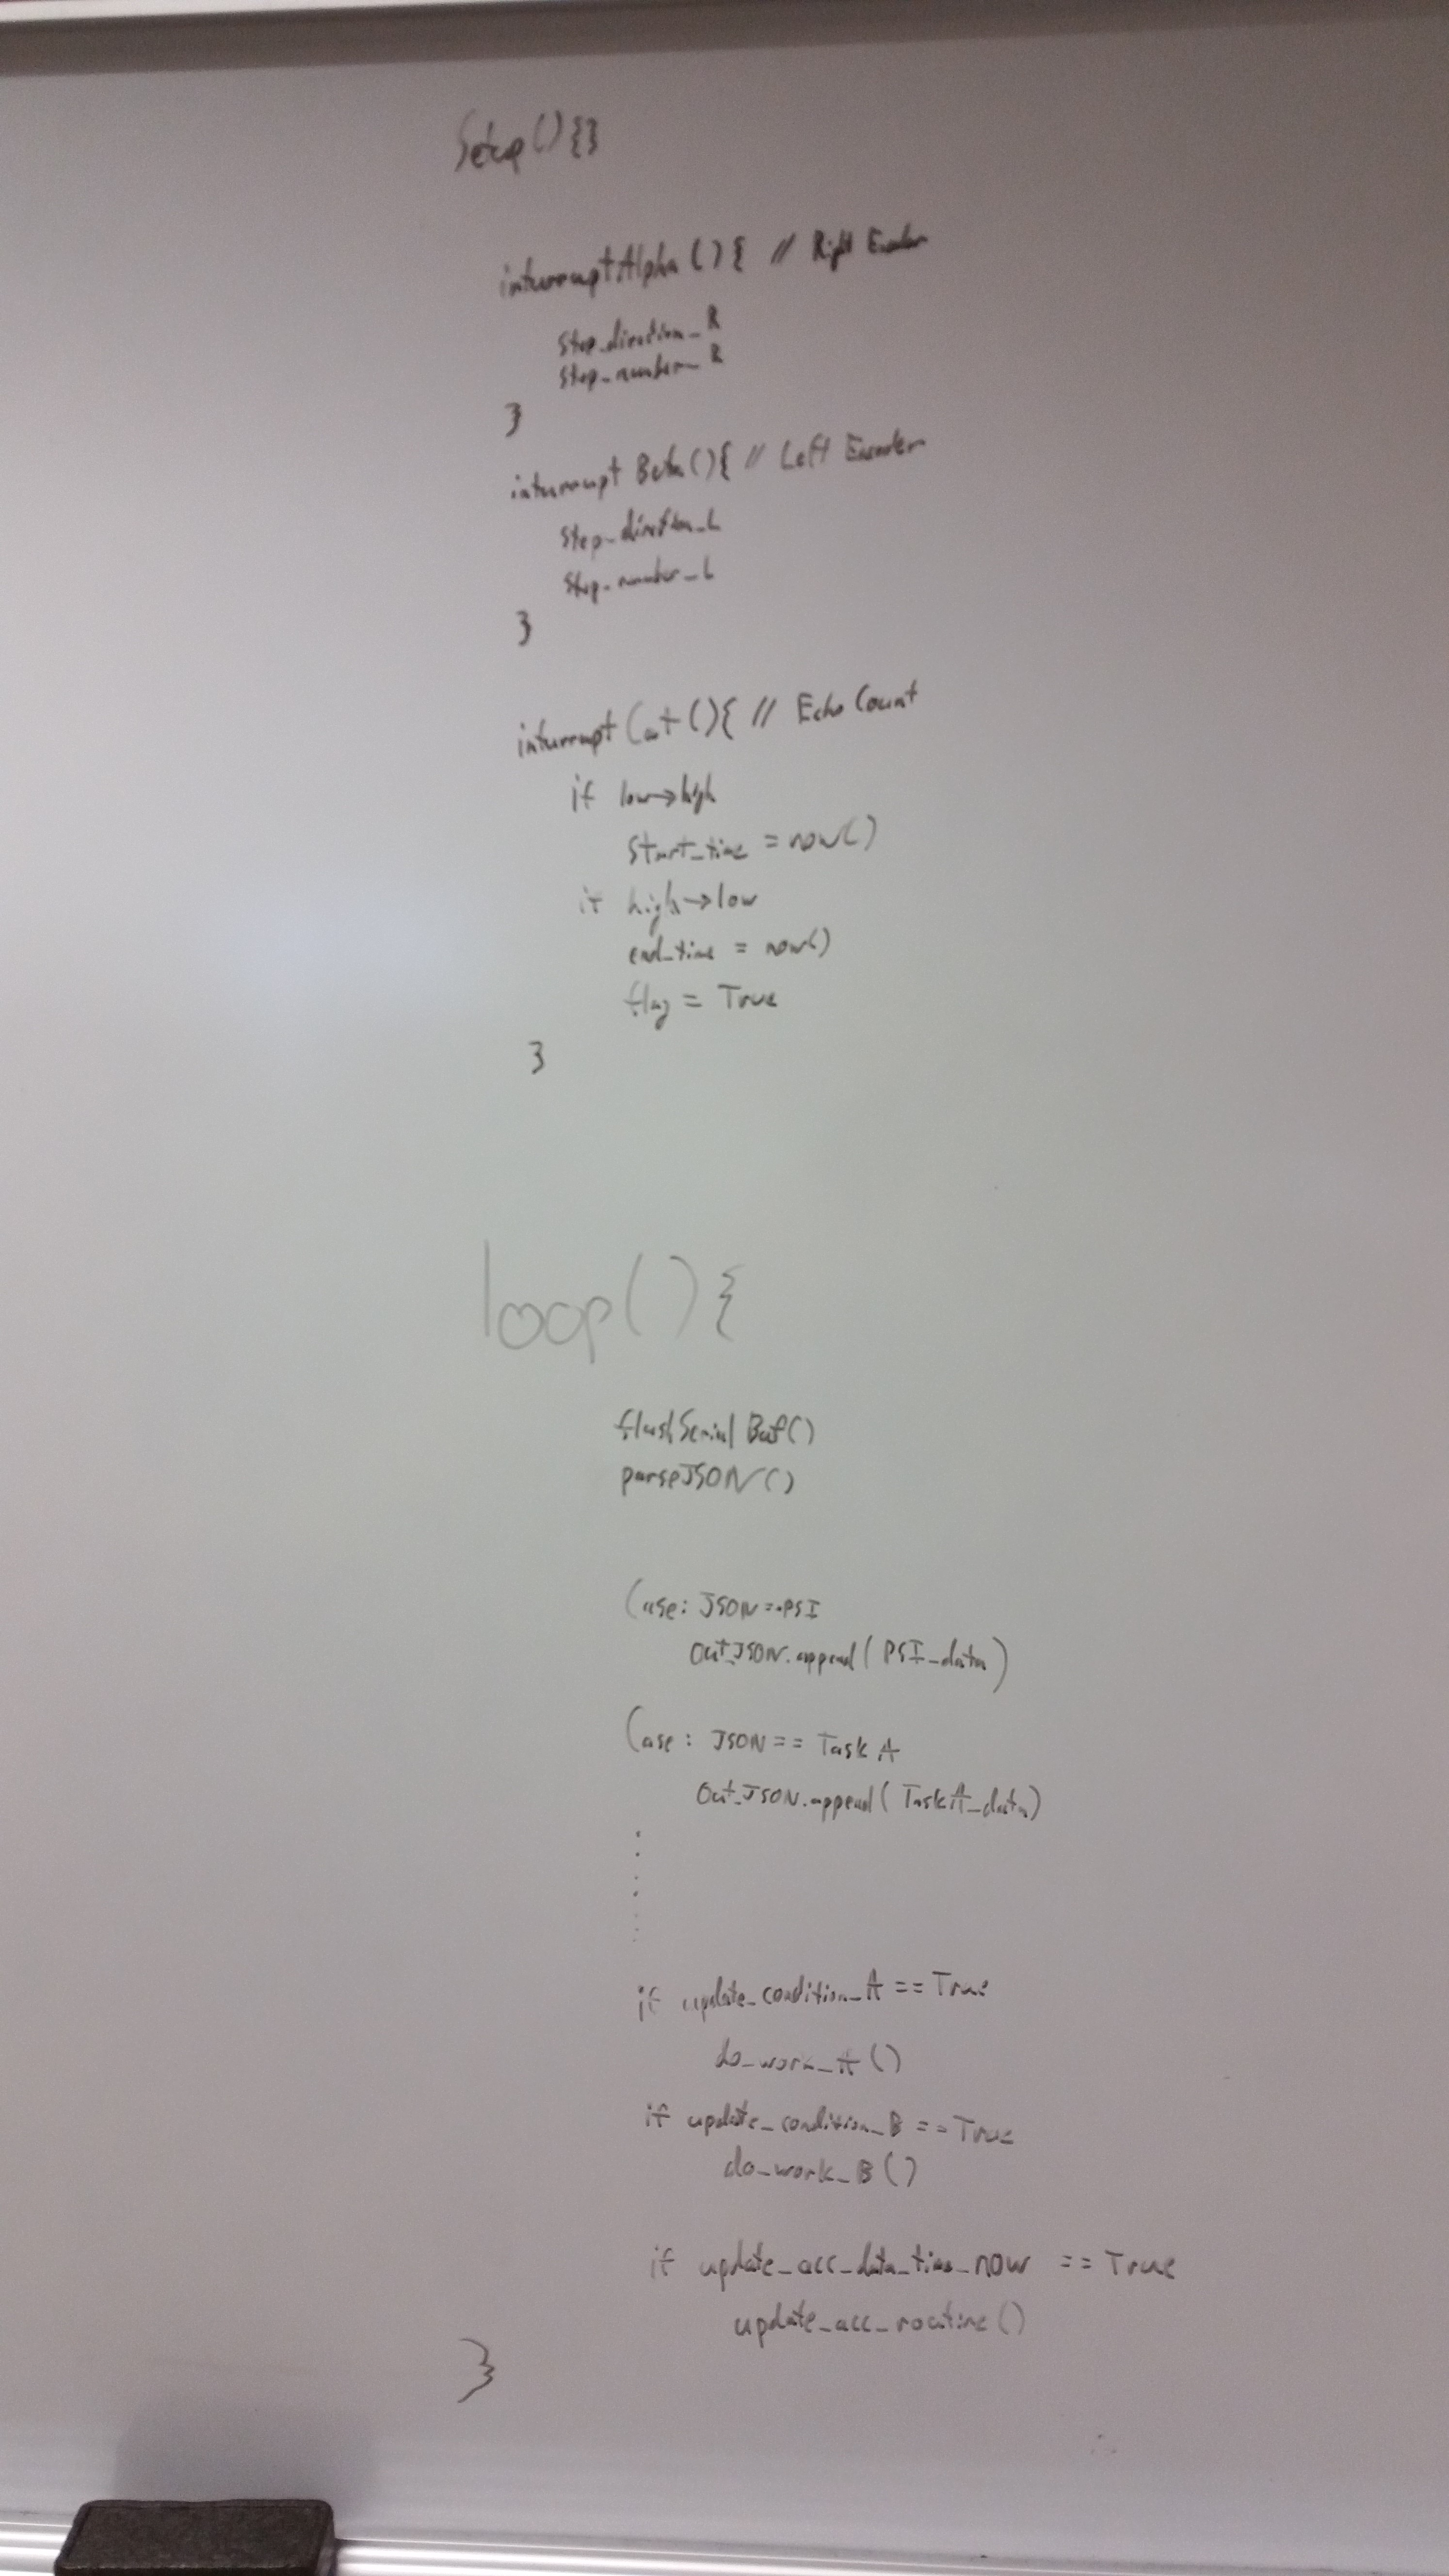 Setup(){}
inturruptAlpha(){ // Right Encoder
Step_direction_R
Step_number_R
}
inturrupt Beta(){ // Left Encoder
Step_direction_L
Step_number_L
}
inturrupt Cat(){ // Echo Count
if low→high
Start_time = now()
if high→low
end_time = now()
flag = True
}
loop(){
flushSerial Buf()
parseJSON()
Case: JSON==PSI
Out_JSON.append(PSI_data)
Case: JSON== Task A
Out_JSON.append(TaskA_data)
if update_condition_A == True
do_work_A()
if update_condition_B == True
do_work_B()
if update_acc_data_time_now == True
update_acc_routine()
}